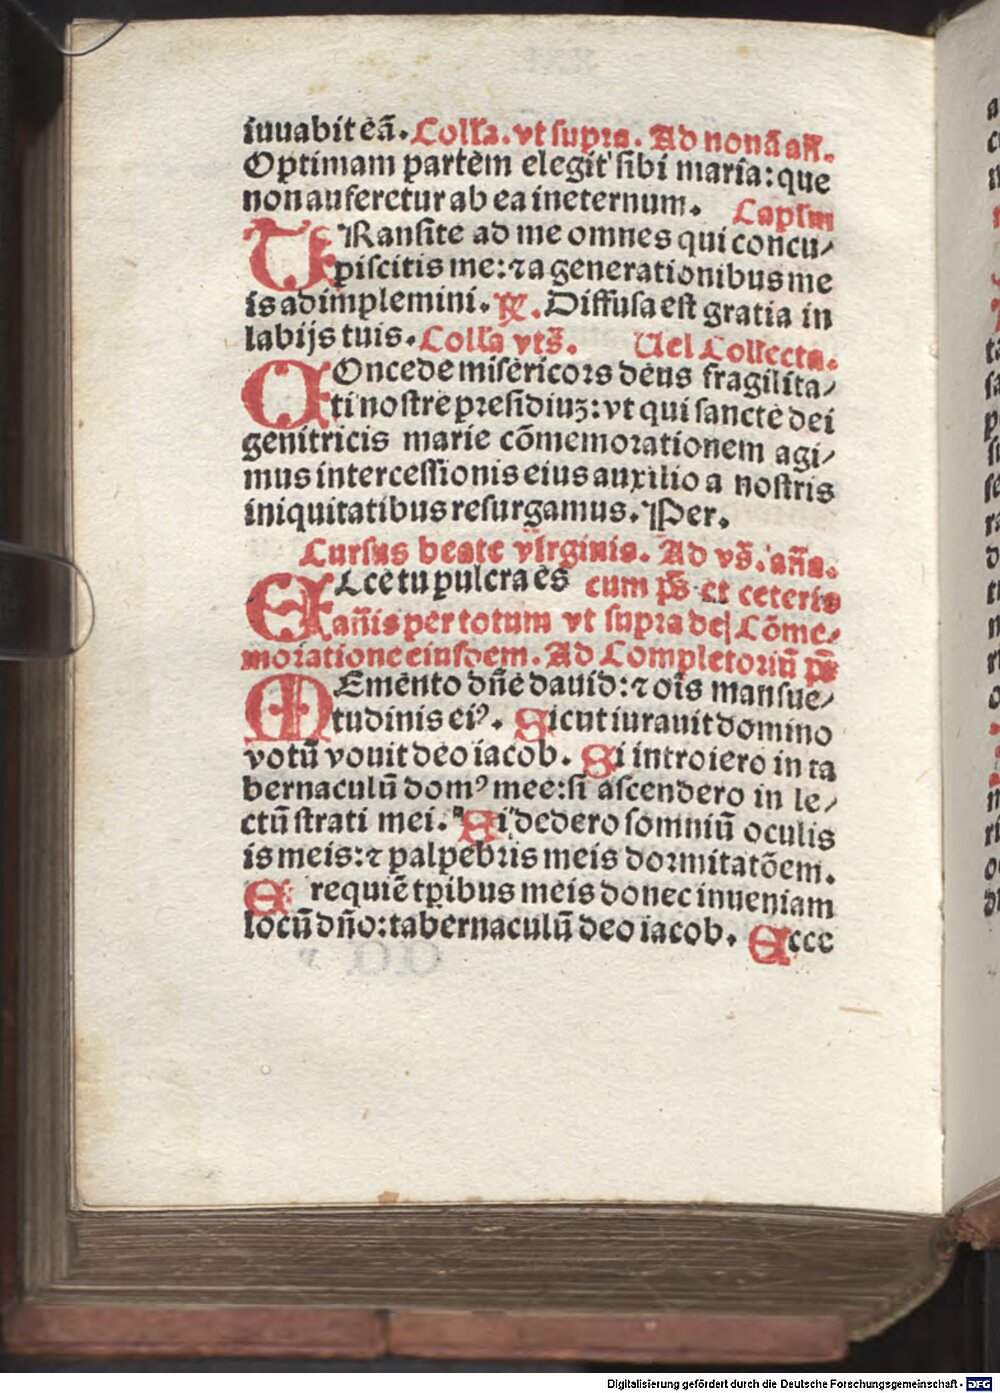 iuuabit eã. Coll'a. vt supra. Ad nonã aff.
Optimam partem elegit sibi maria: que
non auferetur ab ea ineternum. Caplm
TRansite ad me omnes qui concu⸗
piscitis me: ⁊ a generationibus me
is adimplemini. ℟. Diffusa est gratia in
labijs tuis. Coll'a vts̃. Uel Collecta.
COncede misericors deus fragilita⸗
ti nostre presidiuꝫ: vt qui sancte dei
genitricis marie cõmemorationem agi⸗
mus intercessionis eius auxilio a nostris
iniquitatibus resurgamus. Per.
Cursus beate virginis. Ad vs̃. añа.
ECce tu pulcra es cum ps̃ et ceteris
añis per totum vt supra de Cõme⸗
moratione eiusdem. Ad Completoriũ ps̃
MEmento dñe dauid: ⁊ oĩs mansue⸗
tudinis eiꝰ. Sicut iurauit domino
votũ vouit deo iacob. Si introiero in ta
bernaculũ domꝰ mee: si ascendero in le⸗
ctũ strati mei. Si dedero somniũ oculis
is meis: ⁊ palpebris meis dormitatõem.
Et requiẽ tpibus meis donec inueniam
locũ dño: tabernaculũ deo iacob. Ecce
Digitalisierung gefördert durch die Deutsche Forschungsgemeinschaft - DFG